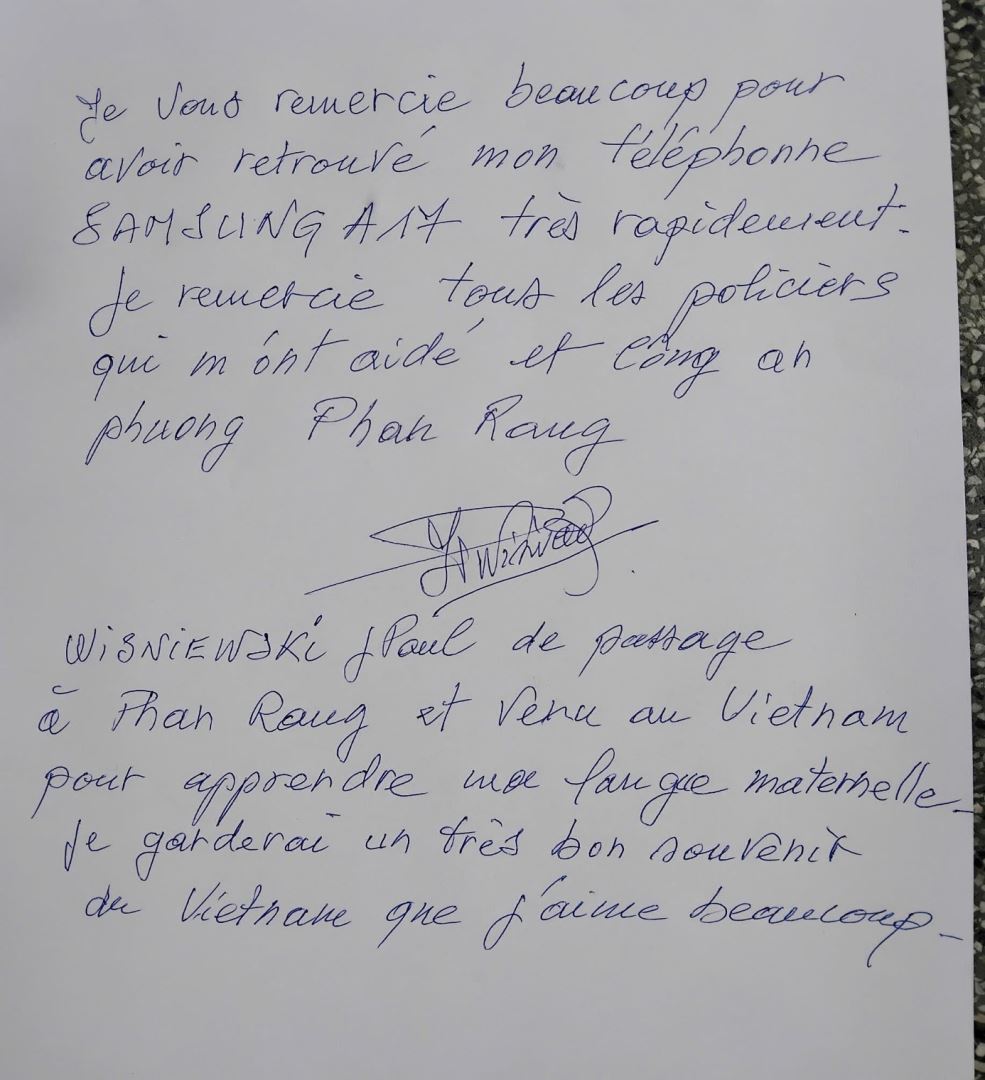 Je vous remercie beaucoup pour
avoir retrouvé mon téléphonne
SAMSUNG A17 très rapidement.
Je remercie tous les policiers
qui m'ónt aidé et Công an
phuong Phan Rang
WiSNiEWSKi JPaul de passage
à Phan Rang et venu au Vietnam
pour apprendre ma langue maternelle_
Je garderai un très bon souvenir
du Vietnam que j'aime beaucoup_